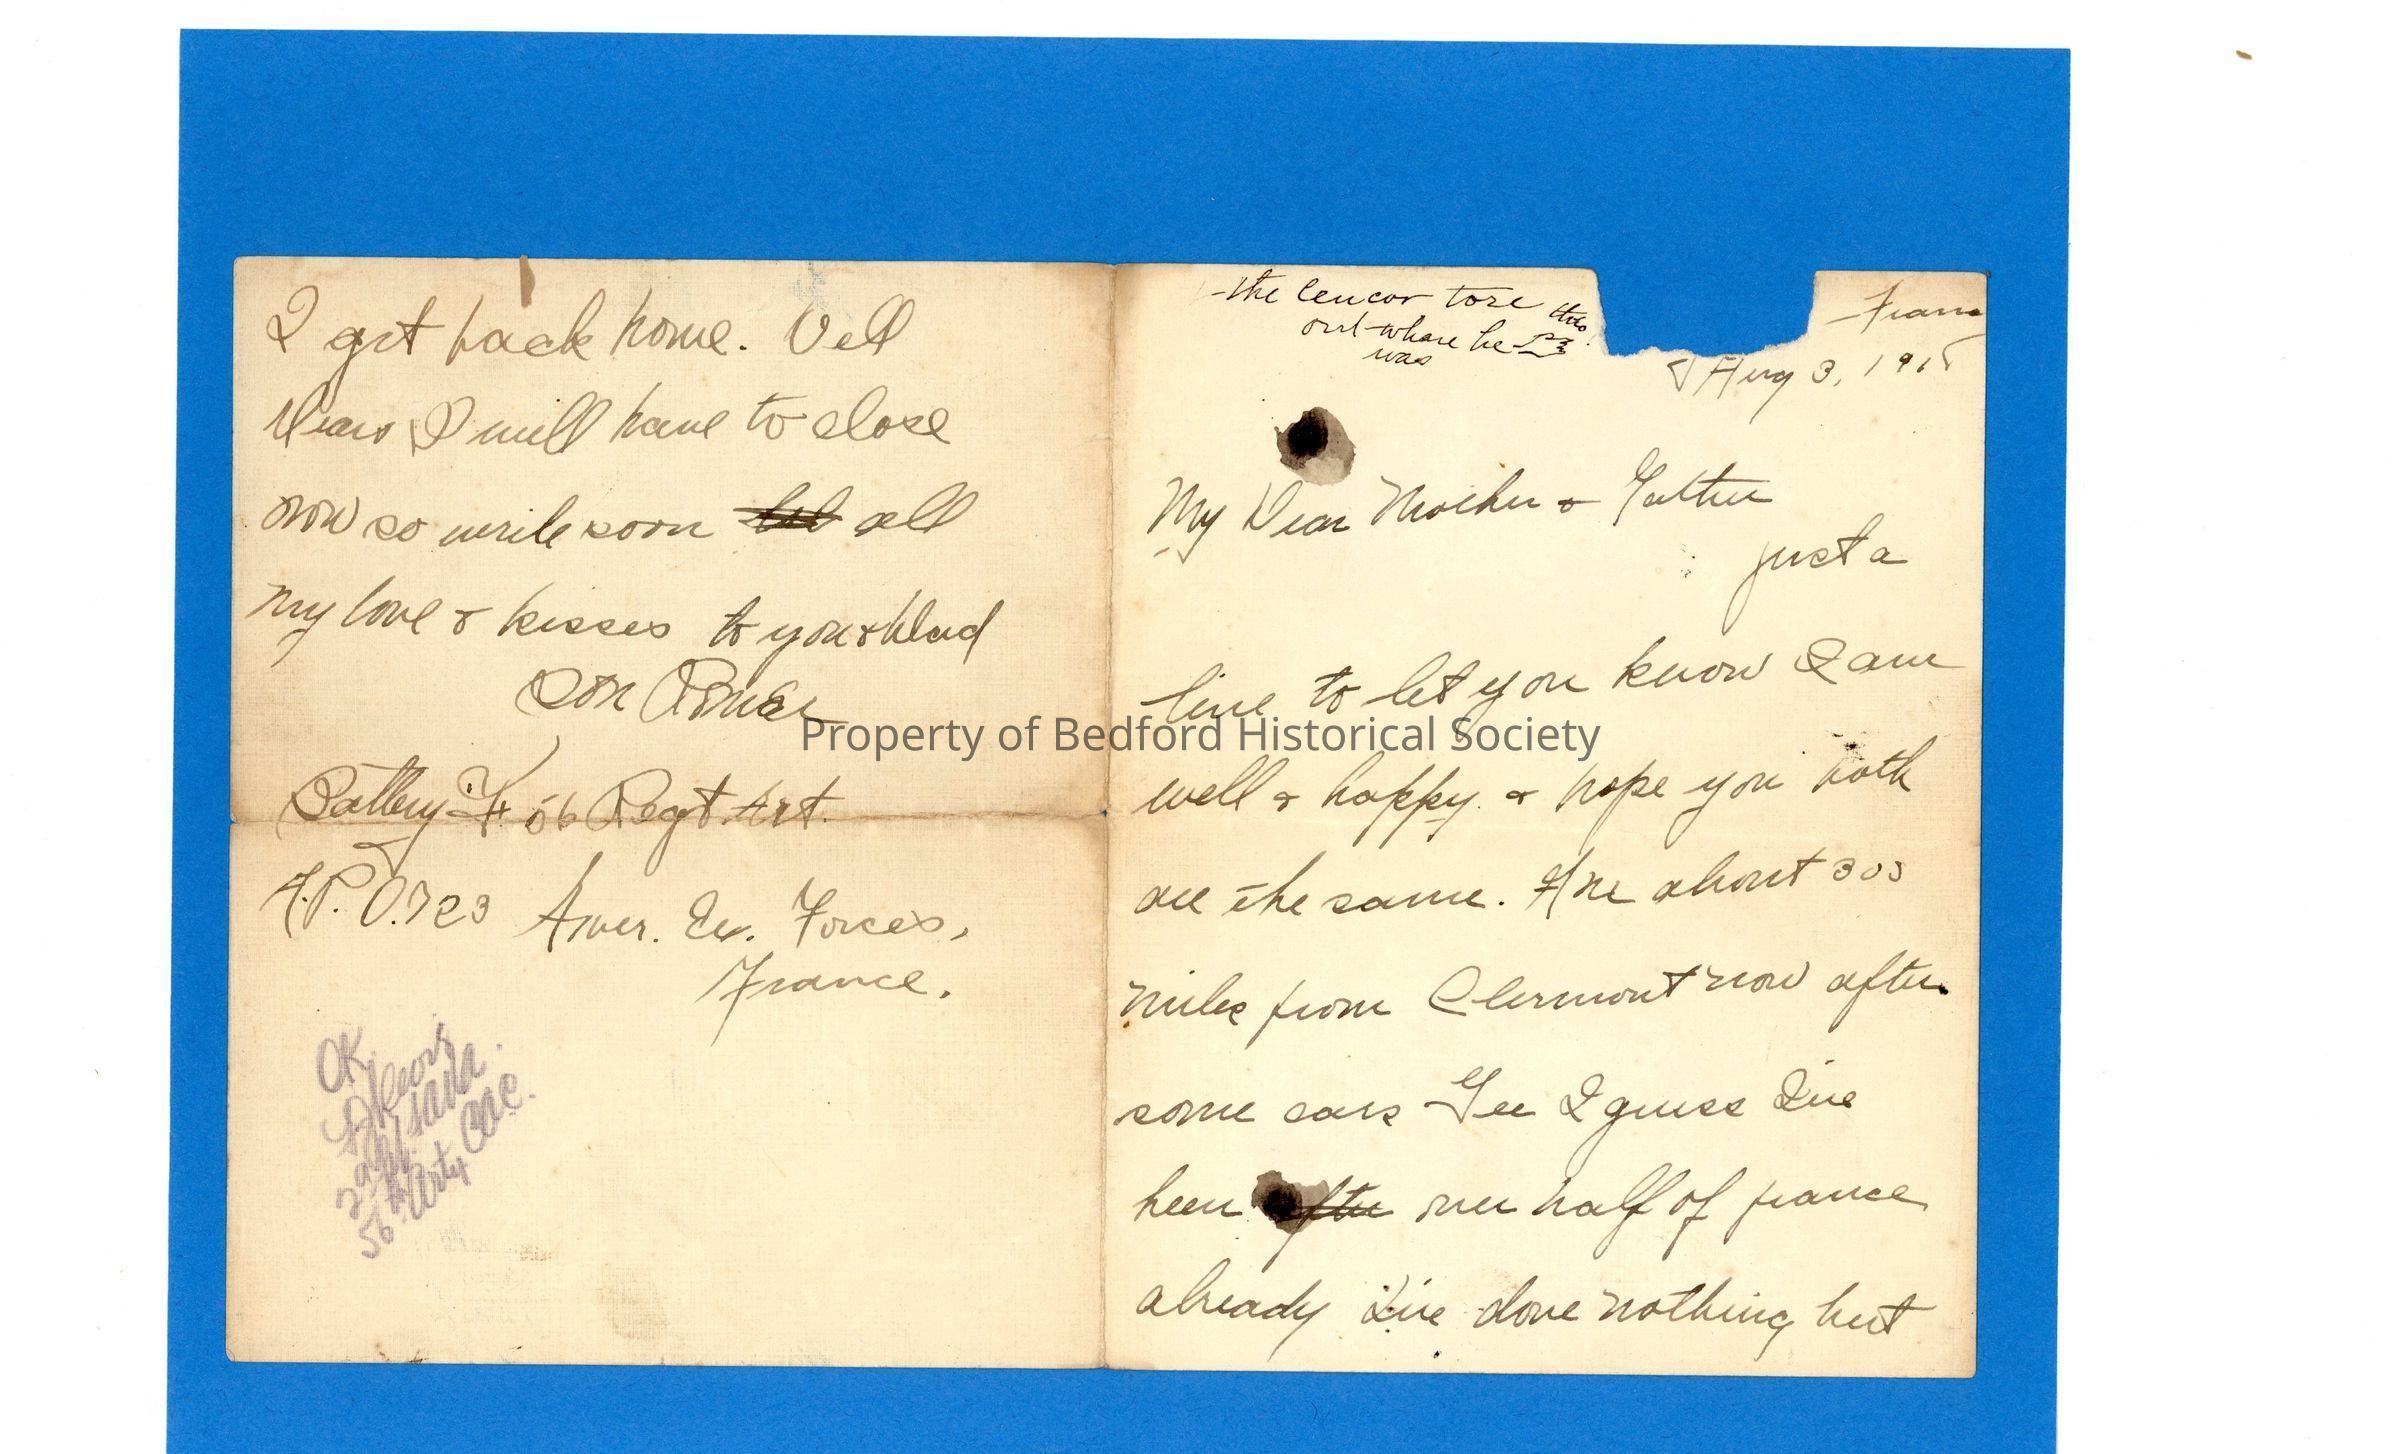 I get back home. Well
Dears I will have to close
now so write soon all
my love & kisses to you & Dad
Son
Battery F 56 Regt. Art.
A.P.O. 723 Amer. Ex. Forces,
France.
OK
2nd
56 Arty CAC.
the cencor tore this
out whare he
was
Franc
Aug 3, 1918
My Dear Mother & Father
just a
line to let you know I am
well & happy. & hope you both
are the same. Are about 300
miles from Clermont now after
some cars Gee I guess I've
been after over half of france
already I've done nothing but
Property of Bedford Historical Society